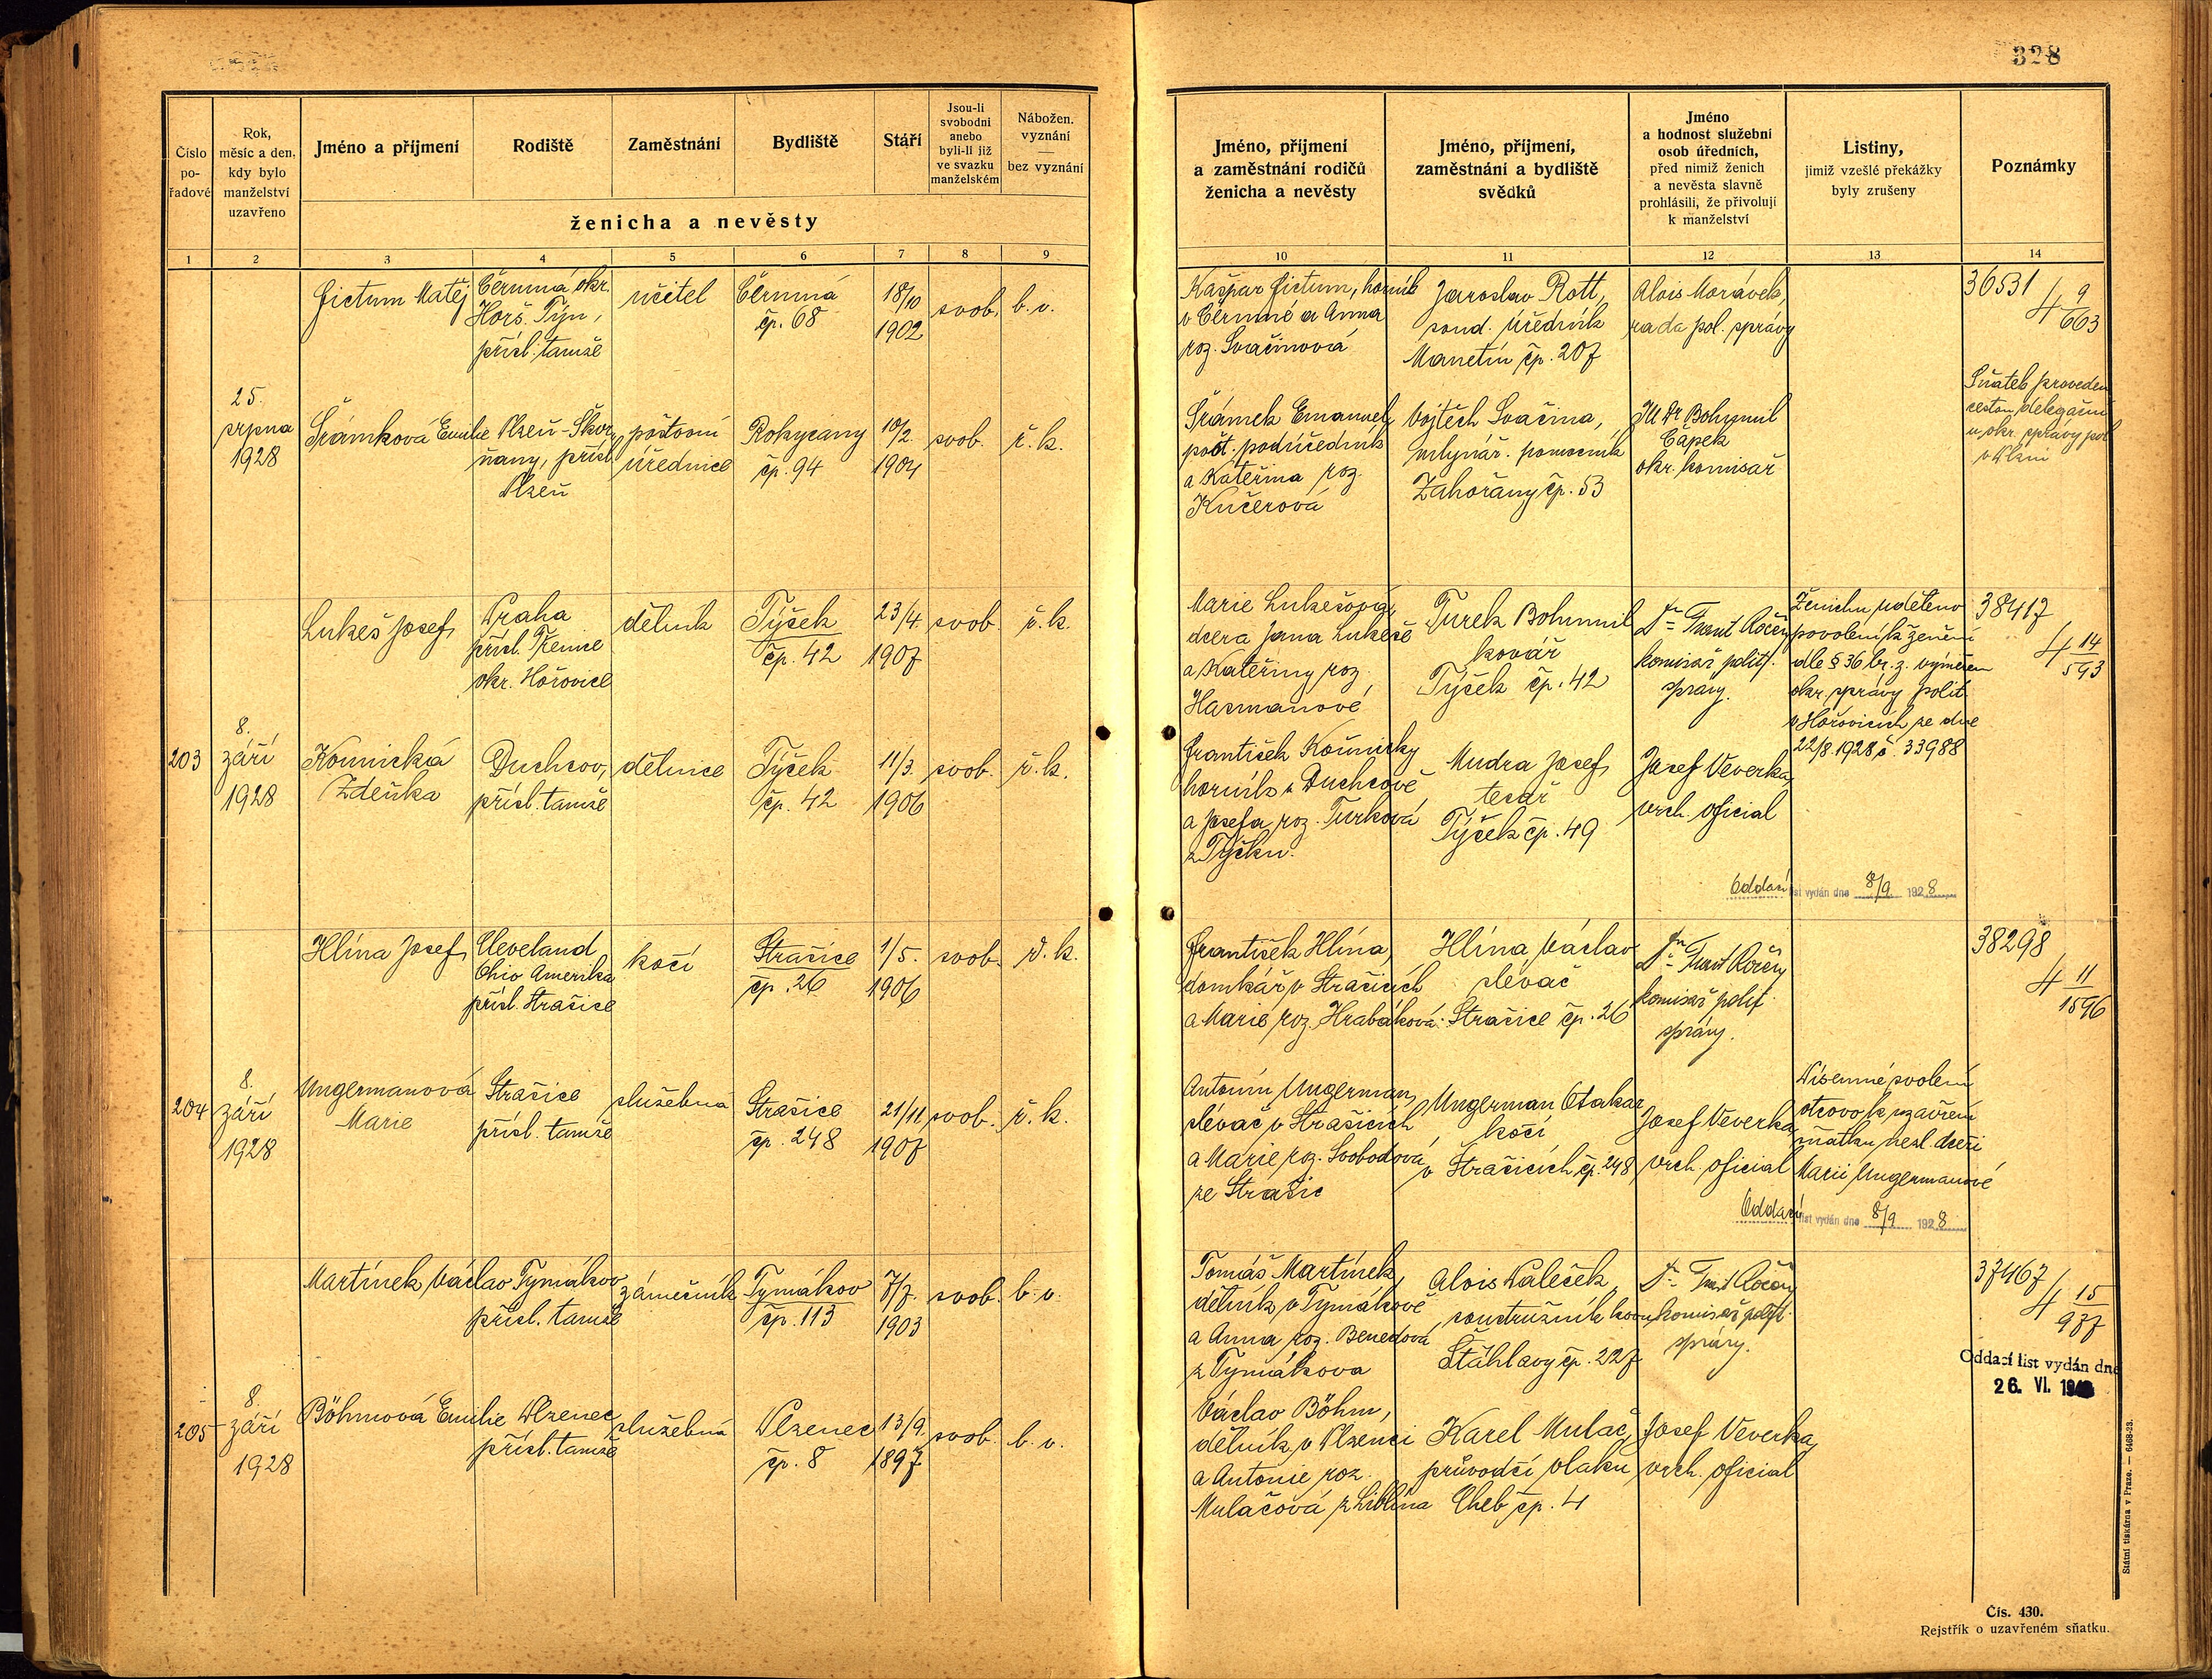 328
Číslo
po-
řadové
Rok,
měsíc a den,
kdy bylo
manželství
uzavřeno
Jméno a příjmení
Rodiště
Zaměstnání
Bydliště
Stáří
Jsou-li
svobodni
anebo
byli-li již
ve svazku
manželském
Nábožen.
vyznání
bez vyznání
ženicha a nevěsty
Jméno, příjmení
a zaměstnání rodičů
ženicha a nevěsty
Jméno, příjmení,
zaměstnání a bydliště
svědků
Jméno
a hodnost služební
osob úředních,
před nimiž ženich
a nevěsta slavně
prohlásili, že přivolují
k manželství
Listiny,
jimiž vzešlé překážky
byly zrušeny
Poznámky
1 2 3 4 5 6 7 8 9 10 11 12 13 14
25.
srpna
1928
Fictum Matěj
Čermná okr.
Horš. Týn,
přísl. tamše
učitel
Čermná
čp. 68
18/10
1902
svob.
b. v.
Kašpar Fictum, horník
v Čermné a Anna
roz. Svačinová
Jaroslav Rott,
soud. úředník
Manetín čp. 207
Alois Morávek,
rada pol. správy
36531
4 9/663
Šrámková Emilie
Plzeň - Skvr-
ňany, přísl.
Plzeň
poštovní
úřednice
Rokycany
čp. 94
10/2.
1904
svob.
ř. k.
Šrámek Emanuel,
pošt. podúředník
a Kateřina roz.
Kučerová
Vojtěch Svačina,
mlynář. pomocník
Zahořany čp. 53
JUDr Bohumil
Čapek
okr. komisař
Sňatek proveden
cestou delegační
u okr. správy pol.
v Plzni
203
8.
září
1928
Lukeš Josef
Praha
přísl. Třenice
okr. Hořovice
dělník
Týček
čp. 42
23/4.
1907
svob.
ř. k.
Marie Lukešová,
dcera Jana Lukeše
a Kateřiny roz.
Hasmanové
Turek Bohumil
kovář
Týček čp. 42
Dr Frant Kočí
komisař polit.
správy.
Ženichu uděleno
povolení k ženění
dle § 36 br. z. výměrem
okr. správy polit.
v Hořovicích ze dne
22/8. 1928 č. 33988
38417
4 14/593
Kounická
Zdeňka
Duchcov,
přísl. tamše
dělnice
Týček
čp. 42
11/3.
1906
svob.
ř. k.
František Kounický
horník v Duchcově
a Josefa roz. Turková
z Týčku.
Mudra Josef
tesař
Týček čp. 49
Josef Veverka,
vrch. oficial
Oddací list vydán dne 8/9 1928
204
8.
září
1928
Hlína Josef
Cleveland
Ohio Amerika
přísl. Strašice
kočí
Strašice
čp. 26
1/5.
1906
svob.
ř. k.
František Hlína,
domkář v Strašicích
a Marie roz. Hrabáková.
Hlína Václav
slévač
Strašice čp. 26
Dr Frant Kočí
komisař polit.
správy.
38298
4 11/1596
Ungermanová
Marie
Strašice
přísl. tamše
služebná
Strašice
čp. 248
21/11
1907
svob.
ř. k.
Antonín Ungerman,
slévač v Strašicích
a Marie roz. Svobodová
ze Strašic
Ungerman Otakar
kočí
v Strašicích čp. 248
Josef Veverka,
vrch. oficial
Písemné svolení
otcovo k uzavření
sňatku nezl. dceři
Marii Ungermanové
Oddací list vydán dne 8/9 1928
205
8.
září
1928
Martínek Václav
Tymákov
přísl. tamše
zámečník
Tymákov
čp. 113
7/7.
1903
svob.
b. v.
Tomáš Martínek,
dělník v Tymákově
a Anna roz. Benedová
z Tymákova
Alois Paleček,
soustružník kovu,
Šťáhlavy čp. 227
Dr Frant Kočí
komisař polit.
správy.
37467
4 15/987
Oddací list vydán dne
26. VI.
Böhmová Emilie
Plzenec
přísl. tamše
služebná
Plzenec
čp. 8
13/9.
1897
svob.
b. v.
Václav Böhm,
dělník v Plzenci
a Antonie roz.
Mulačová z Liblína
Karel Mulač,
průvodčí vlaku
Cheb čp. 4
Josef Veverka,
vrch. oficial
Státní tiskárna v Praze. — 6468-23.
Čís. 430.
Rejstřík o uzavřeném sňatku.